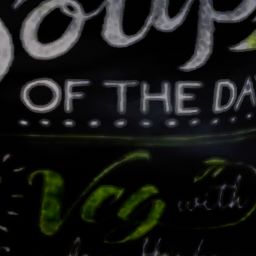 Soup
OF THE DA
Veg with